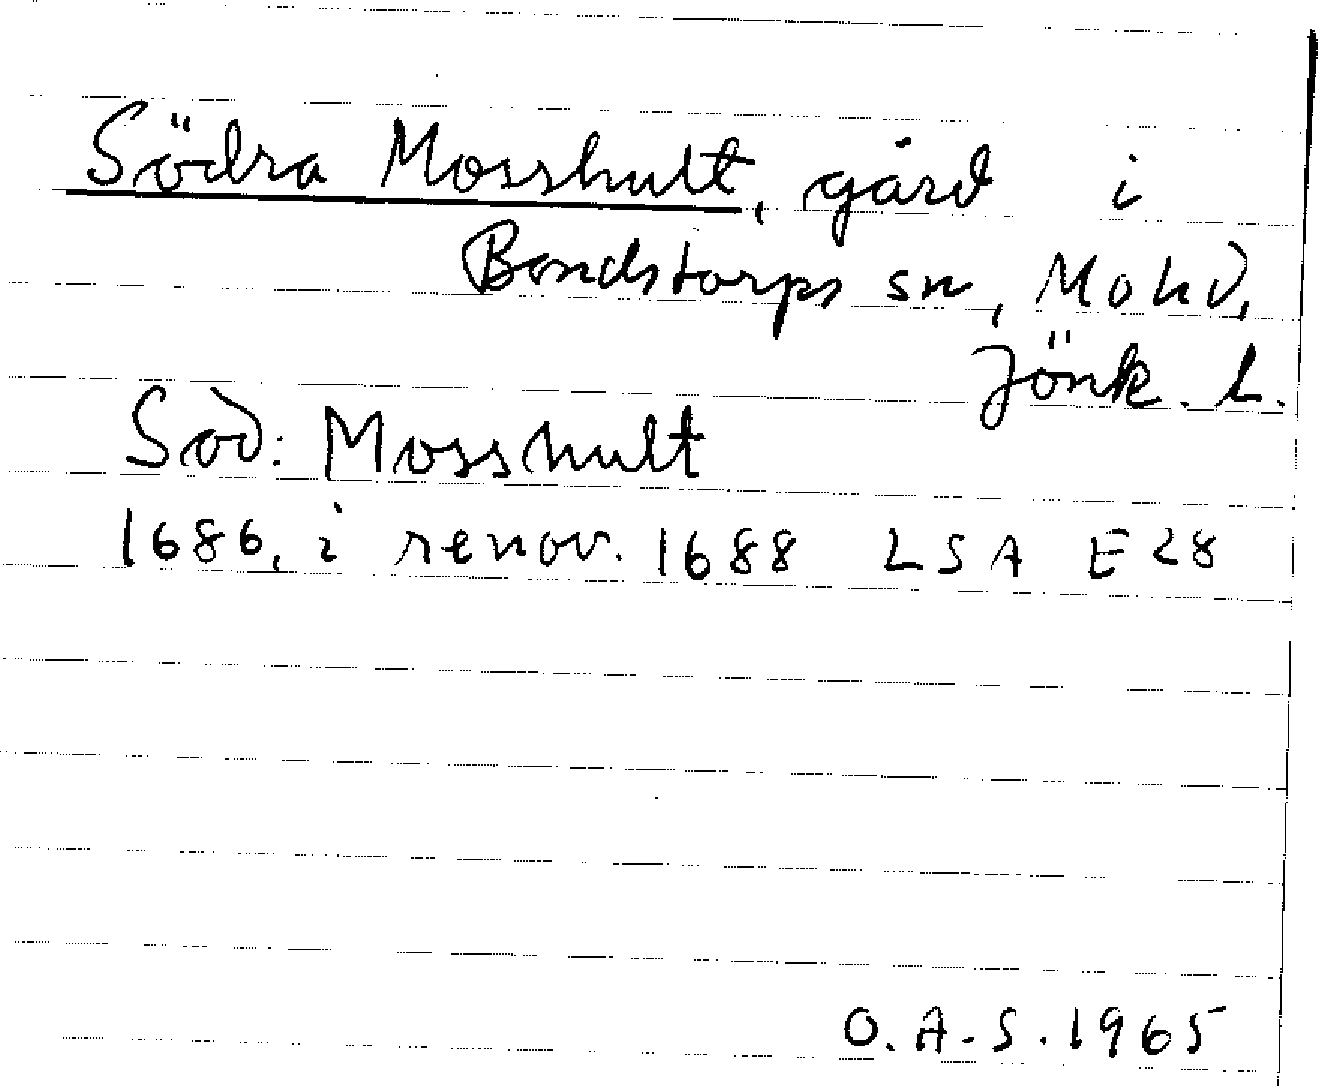 Södra Mosshult, gård i
Bondstorps sn, Mo hd,
Jönk. L.
Sod: Mosshult
1686, i renov. 1688 LSA E28
O.A.S. 1965